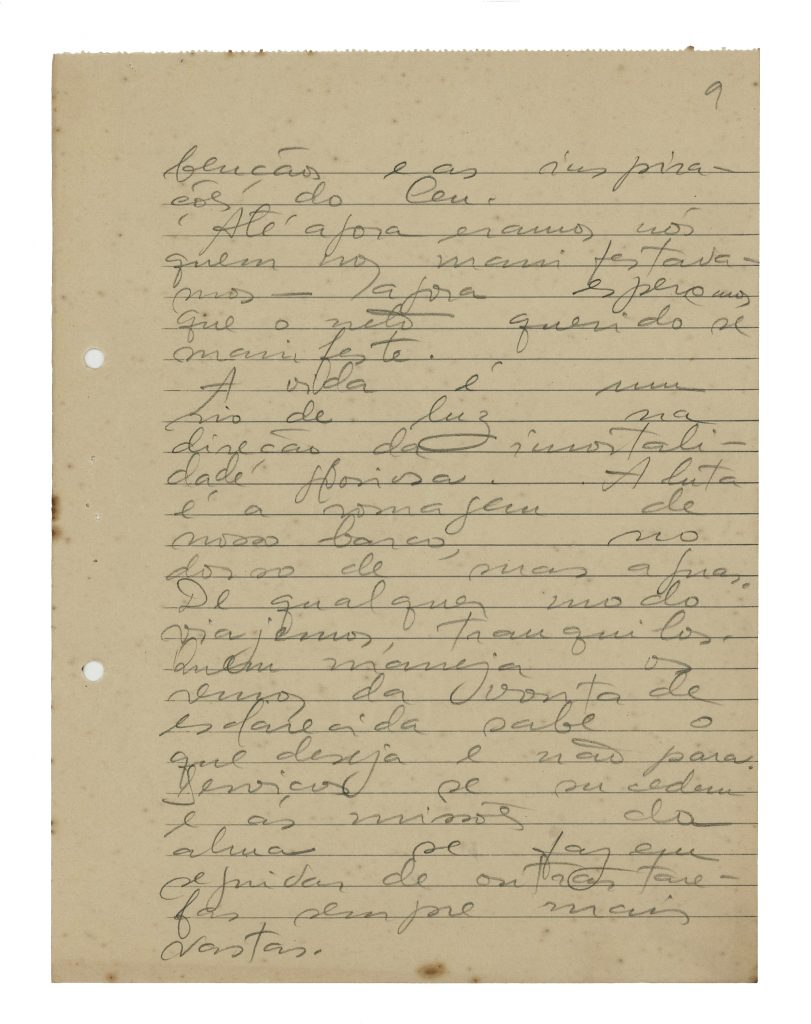 9
bençãos e as inspira-
ções do Ceu.
Até agora eramos nós
quem nos manifestava-
mos — agora esperamos
que o neto querido se
manifeste.
A vida é um
rio de luz na
direção da imortali-
dade gloriosa. A luta
é a romagem de
nosso barco, no
dorso de mas aguas.
De qualquer modo
viajemos, tranquilos.
Quem maneja os
remos da vontade
esclarecida sabe o
que deseja e não para.
Serviços se sucedem
e as missões da
alma se fazem
seguidas de outras tare-
fas sempre mais
vastas.